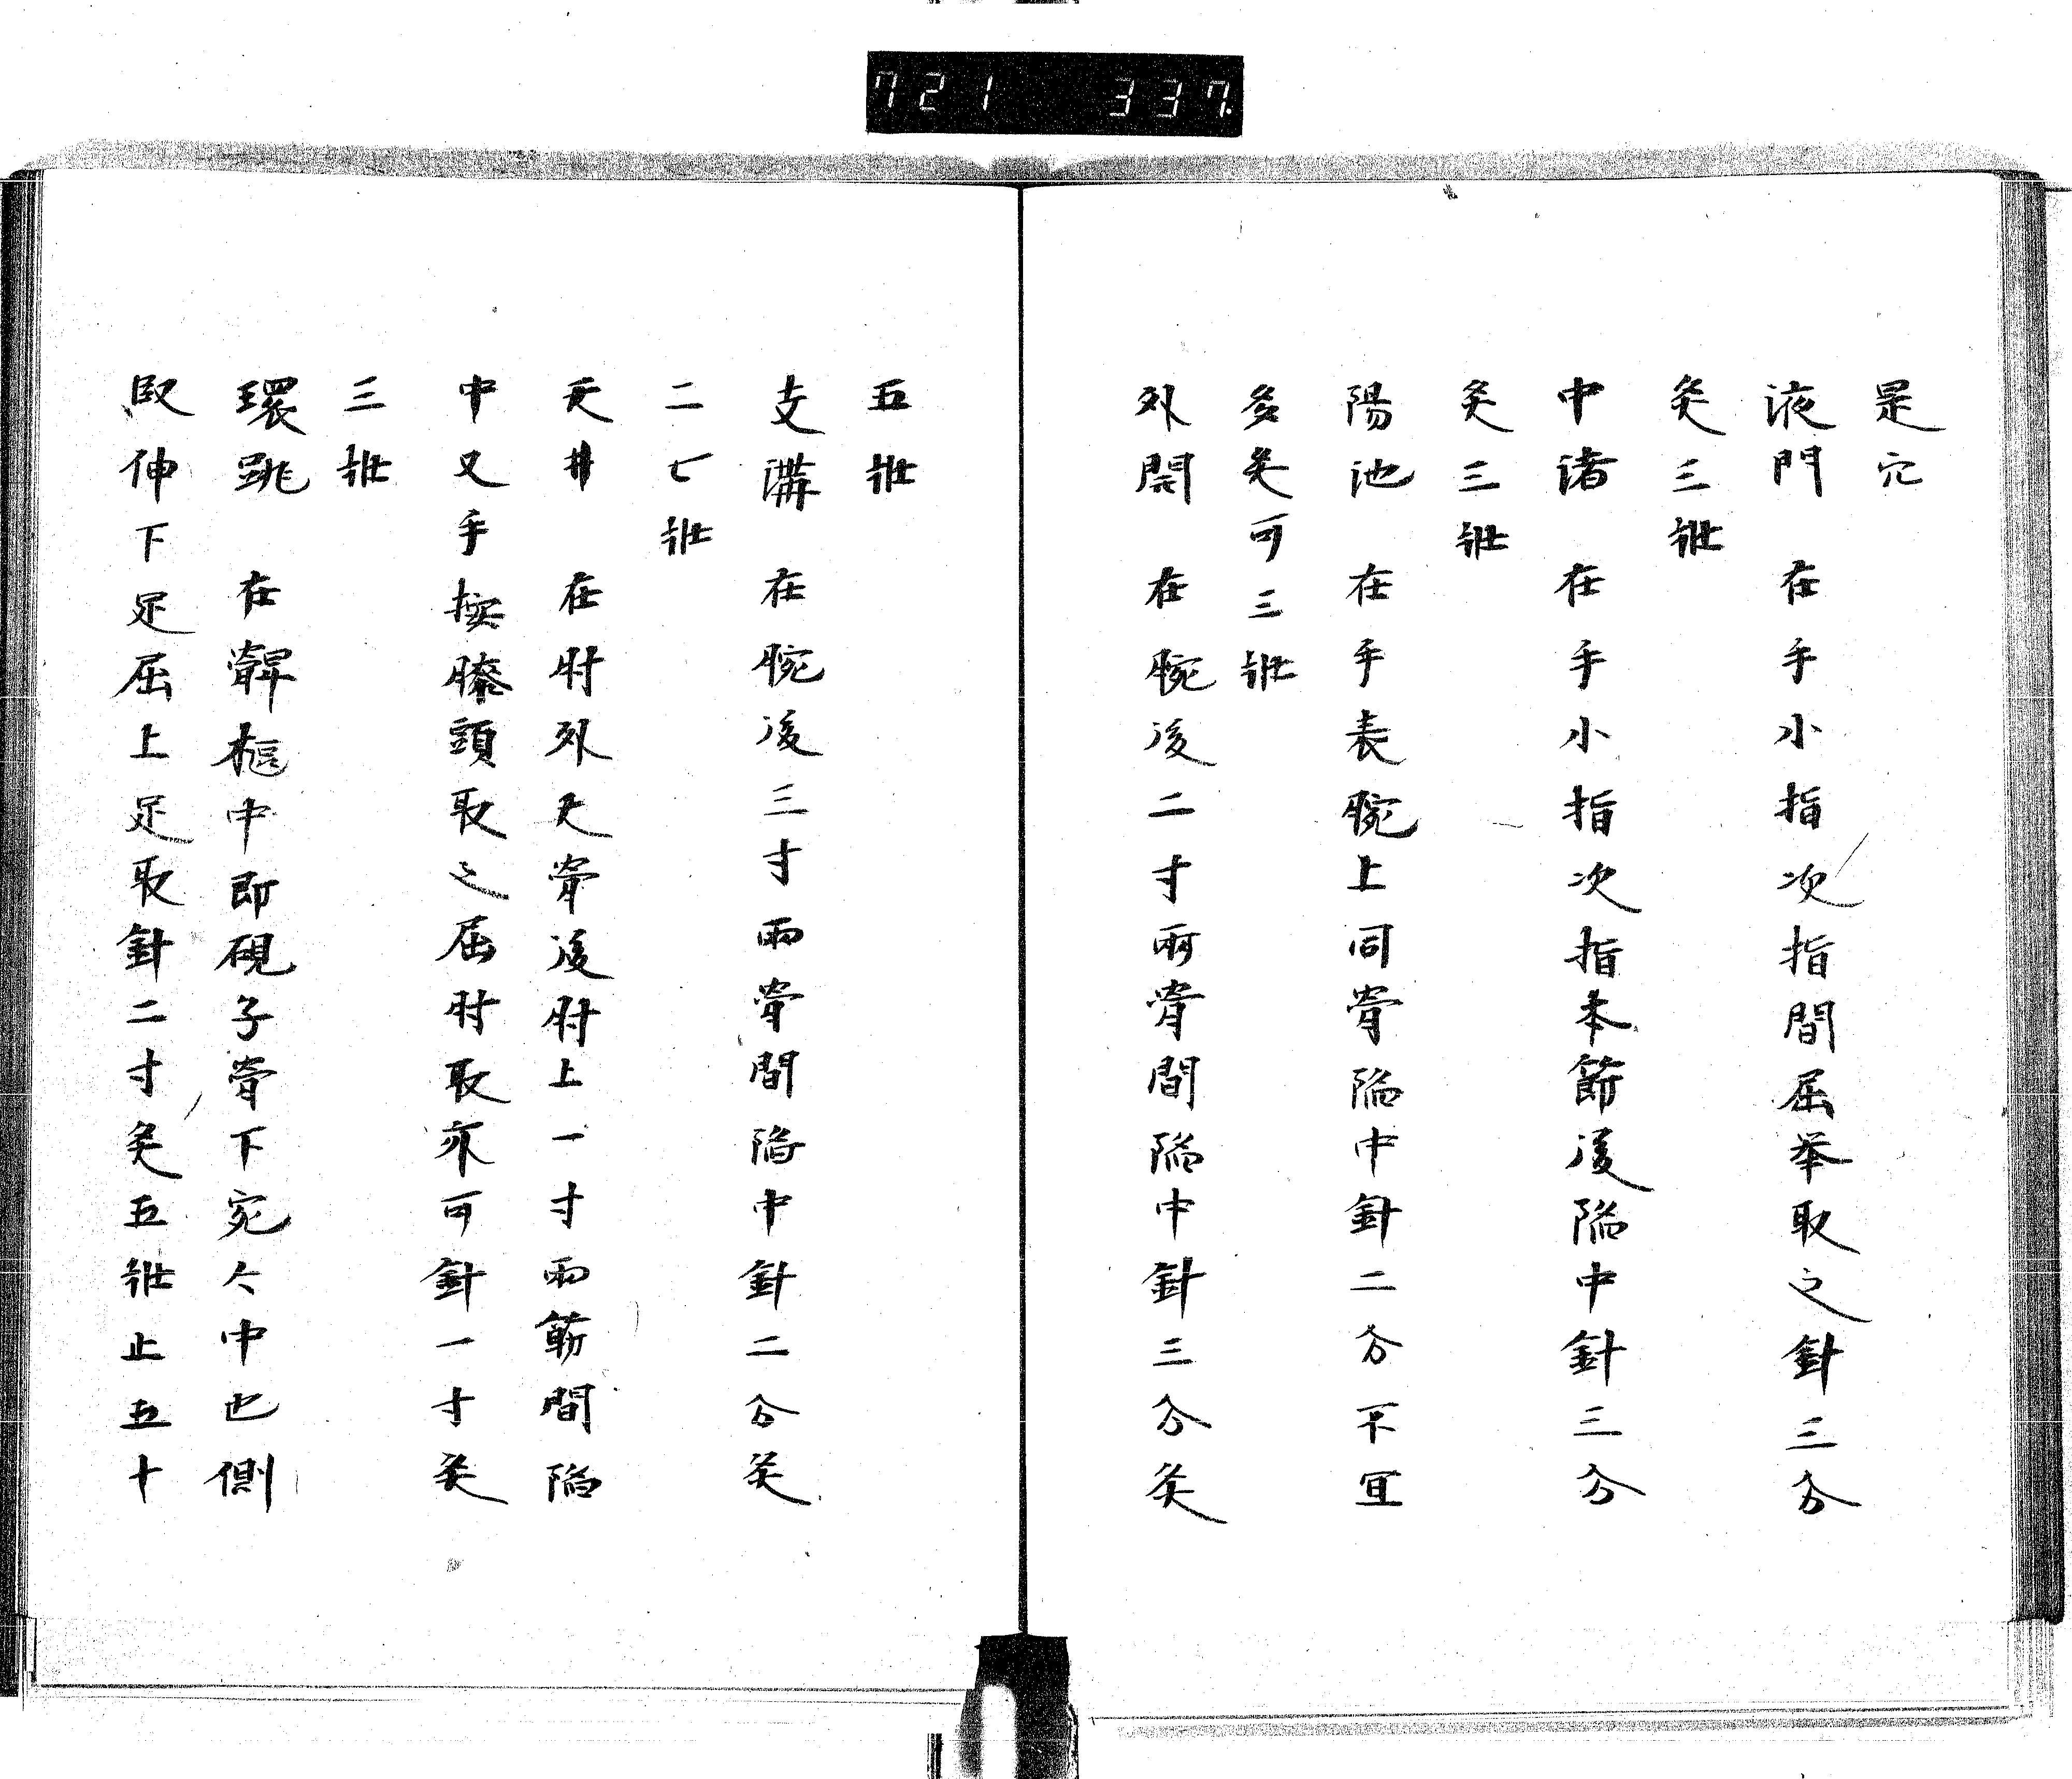 721 337
是穴
液門 在手小指次指間屈挙取之針三分
灸三壯
中渚 在手小指次指本節後陥中針三分
灸三壯
陽池 在手表腕上同骨陥中針二分不宜
多灸可三壯
外関 在腕後二寸兩骨間陥中針三分灸
五壯
支溝 在腕後三寸兩骨間陥中針二分灸
二七壯
天井 在肘外大骨後肘上一寸兩筋間陥
中又手按膝頭取之屈肘取亦可針一寸灸
三壯
環跳 在髀枢中即硯子骨下宛々中也側
臥伸下足屈上足取針二寸灸五壯止五十